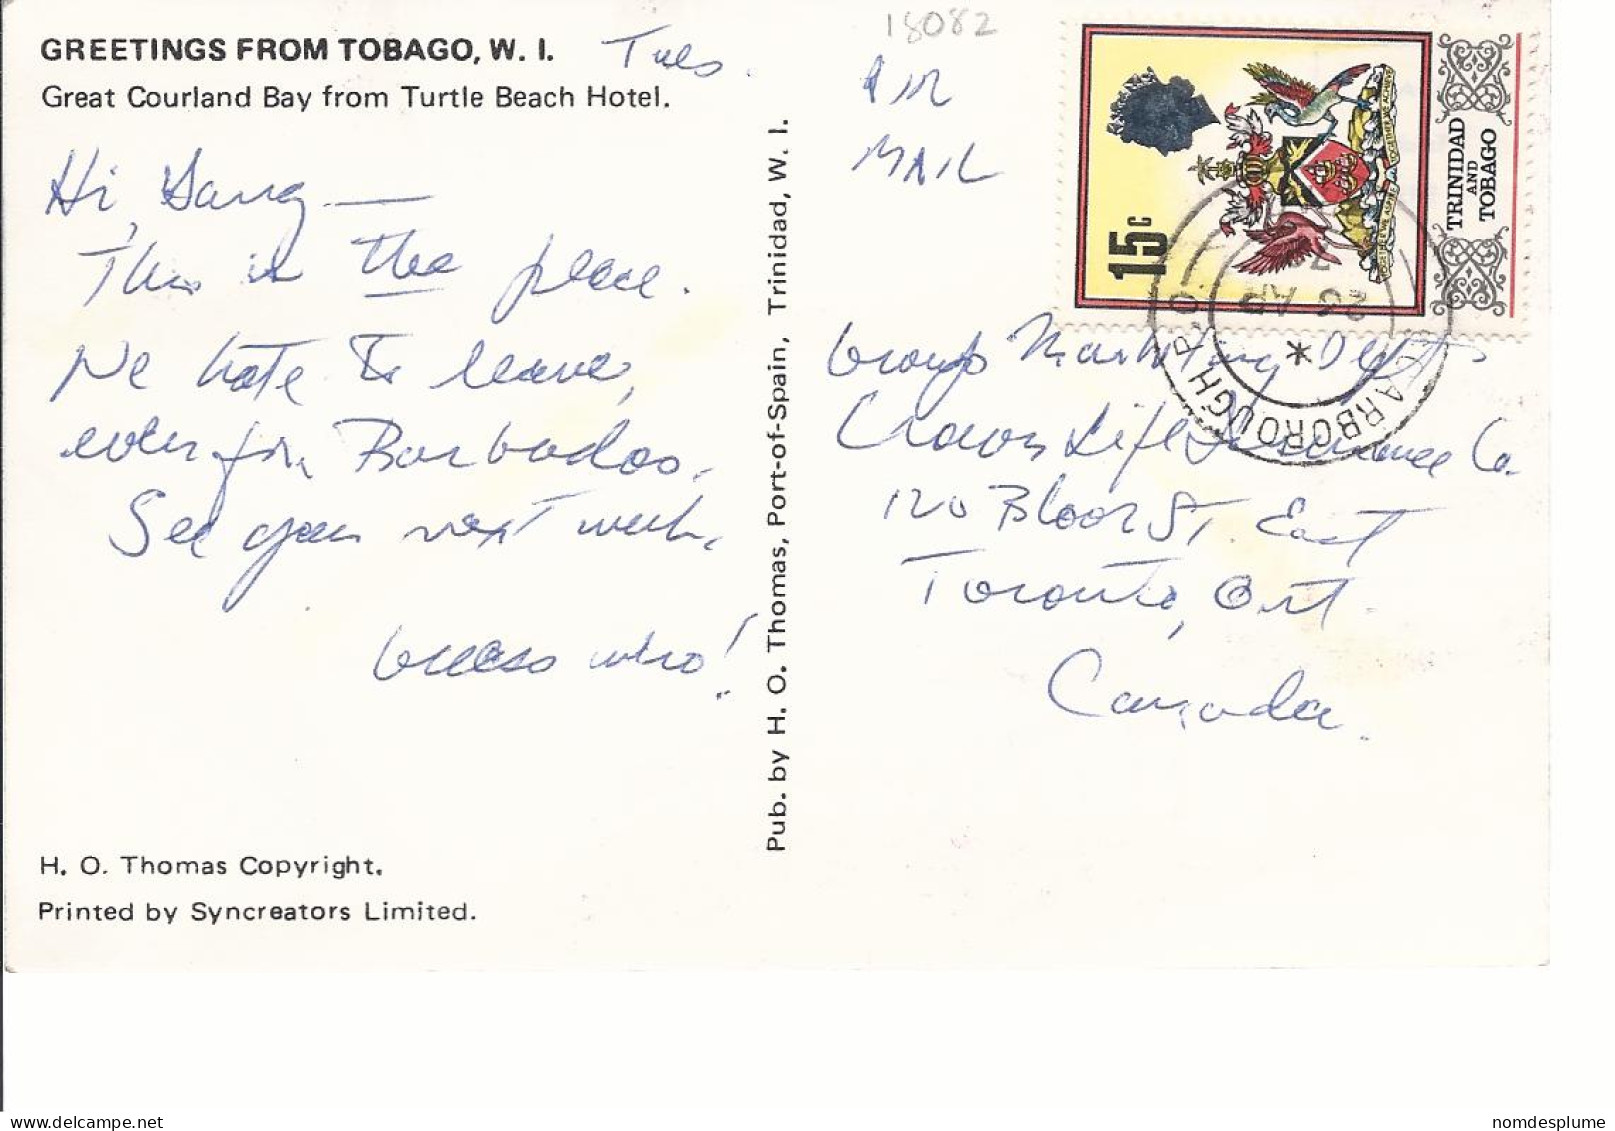 GREETINGS FROM TOBAGO, W. I.
Great Courland Bay from Turtle Beach Hotel.
Tues.
Hi, Gang —
This is the place.
We hate to leave,
even for Barbados.
See you next week.
Guess who!
H. O. Thomas Copyright.
Printed by Syncreators Limited.
Pub. by H. O. Thomas, Port-of-Spain, Trinidad, W. I.
18082
AIR
MAIL
15c
TRINIDAD
AND
TOBAGO
TOGETHER WE ASPIRE TOGETHER WE ACHIEVE
SCARBOROUGH P.O.
26 AP
Group Marketing Dept
Crown Life Insurance Co.
120 Bloor St. East
Toronto, Ont.
Canada.